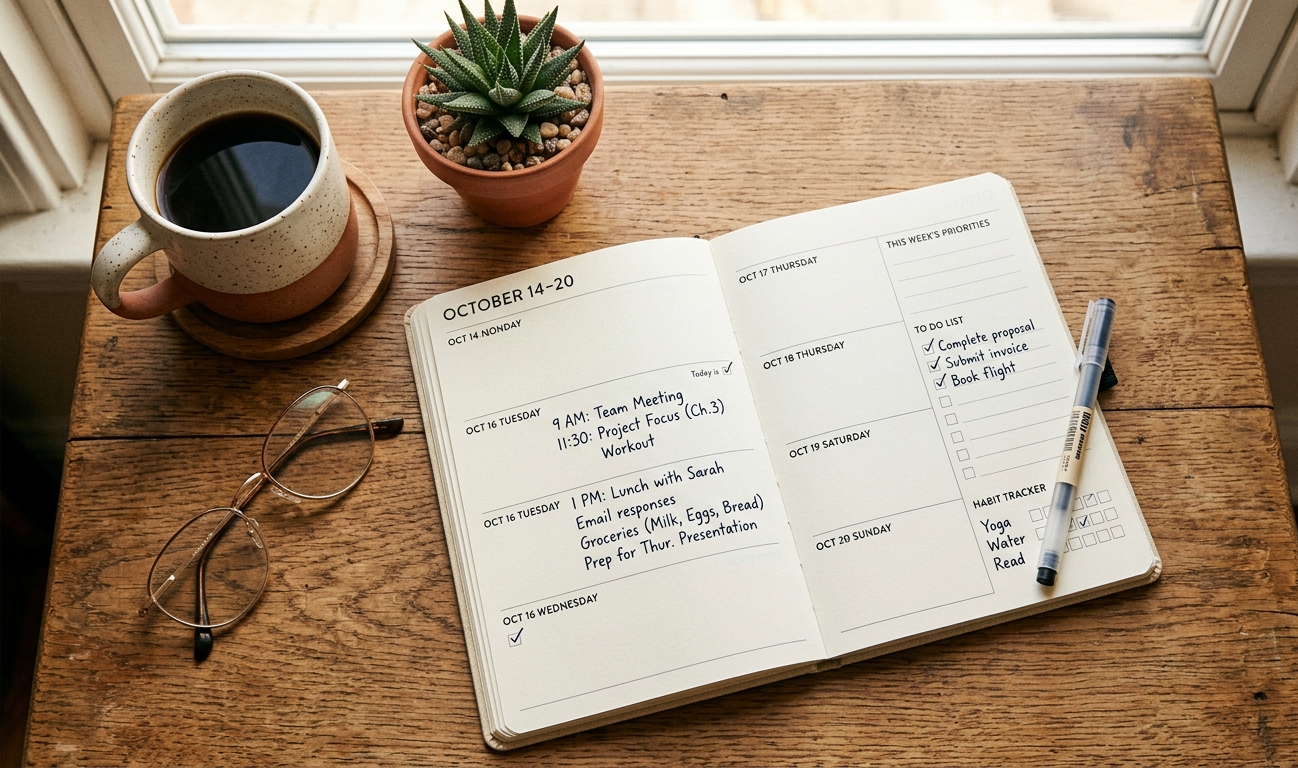 OCTOBER 14–20
OCT 14 NONDAY
Today is
OCT 16 TUESDAY
9 AM: Team Meeting
11:30: Project Focus (Ch.3)
Workout
OCT 16 TUESDAY
1 PM: Lunch with Sarah
Email responses
Groceries (Milk, Eggs, Bread)
Prep for Thur. Presentation
OCT 16 WEDNESDAY
OCT 17 THURSDAY
OCT 18 THURSDAY
OCT 19 SATURDAY
OCT 20 SUNDAY
THIS WEEK'S PRIORITIES
TO DO LIST
Complete proposal
Submit invoice
Book flight
HABIT TRACKER
Yoga
Water
Read